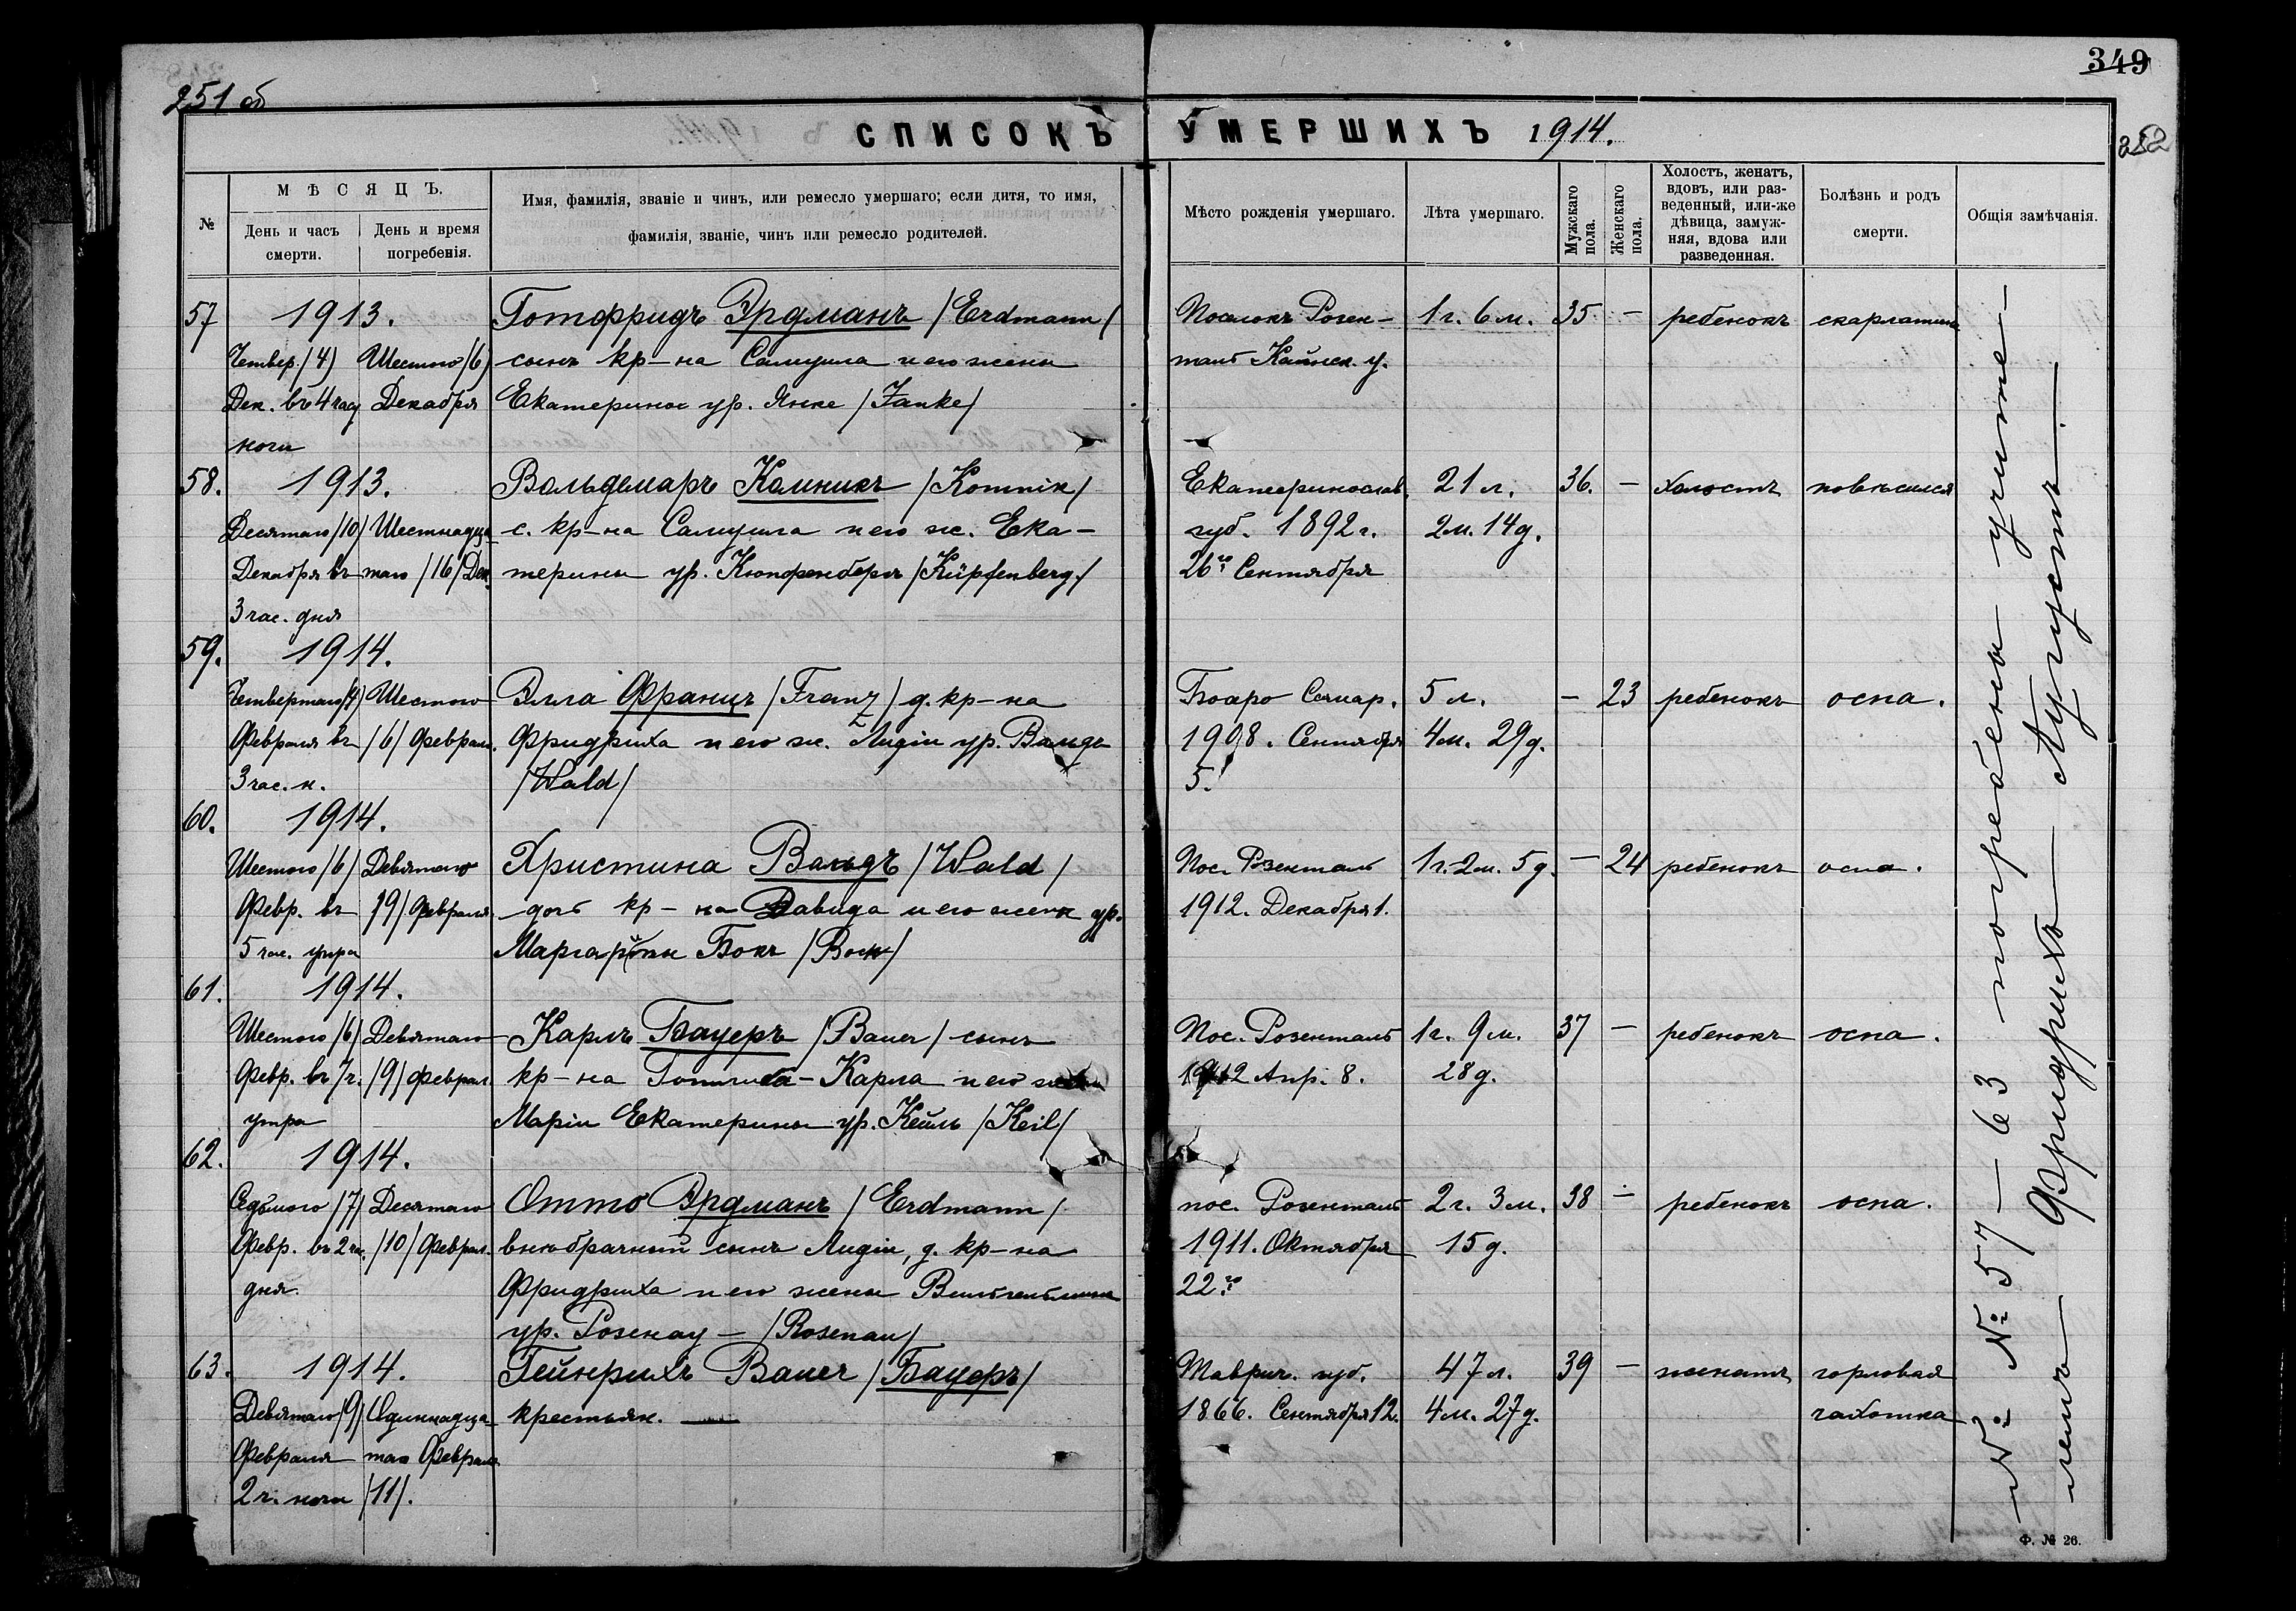 349
251 об
СПИСОКЪ УМЕРШИХЪ 1914.
252
№
МѢСЯЦЪ.
День и часъ смерти.
День и время погребенія.
Имя, фамилія, званіе и чинъ, или ремесло умершаго; если дитя, то имя,
фамилія, званіе, чинъ или ремесло родителей.
Мѣсто рожденія умершаго.
Лѣта умершаго.
Мужскаго пола.
Женскаго пола.
Холостъ, женатъ,
вдовъ, или раз-
веденный, или-же
дѣвица, замуж-
няя, вдова или
разведенная.
Болѣзнь и родъ
смерти.
Общія замѣчанія.
57 1913. Готфридъ Эрдманъ /Erdmann/ Поселокъ Розен- 1 г. 6 м. 35. — ребенокъ скарлатина
Четвер./4/ Шестого/6/ сынъ кр-на Самуила и его жены таль Каинск. у.
Дек. въ 4 часу Декабря Екатерины ур. Янке /Janke/
ночи
58. 1913. Вольдемаръ Комникъ /Komnik/ Екатеринослав. 21 л. 36. — холостъ повѣсился
Десятаго/10/ Шестнадца- с. кр-на Самуила и его ж. Ека- губ. 1892 г. 2 м. 14 д.
Декабря въ таго /16/ Дек. терины ур. Кюпфенбергъ /Küpfenberg/ 26го Сентября
3 час. дня
59. 1914.
Четвертаго/4/ Шестого Элла Францъ /Franz/ д. кр-на Боаро Самар. 5 л. — 23 ребенокъ оспа.
Февраля въ /6/ Феврал. Фридриха и его ж. Лидіи ур. Вальдъ 1908. Сентября 4 м. 29 д.
3 час. н. /Wald/ 5.
60. 1914.
Шестого /6/ Девятаго Христина Вальдъ /Wald/ Пос. Розенталь 1 г. 2 м. 5 д. — 24 ребенокъ оспа.
Февр. въ /9/ Февраля дочь кр-на Давида и его жены ур. 1912. Декабря 1.
5 час. утра Маргариты Бокъ /Bock/
61. 1914.
Шестого /6/ Девятаго Карлъ Бауеръ /Bauer/ сынъ Пос. Розенталь 1 г. 9 м. 37 — ребенокъ оспа.
Февр. въ 7 ч. /9/ Феврал. кр-на Готлиба-Карла и его жены 1912 Апр. 8. 28 д.
утра Маріи Екатерины ур. Кейль /Keil/
62. 1914.
Седьмого /7/ Десятаго Отто Эрдманъ /Erdmann/ пос. Розенталь 2 г. 3 м. 38 — ребенокъ оспа.
Февр. въ 2 час. /10/ Феврал. внѣбрачный сынъ Лидіи, д. кр-на 1911. Октября 15 д.
дня. Фридриха и его жены Вильгельмины 22го
ур. Розенау — /Rosenau/
63. 1914. Гейнрихъ Bauer /Бауеръ/ Таврич. губ. 47 л. 39 — женатъ горловая
Девятаго/9/ Одиннадца- крестьян. 1866. Сентября 12. 4 м. 27 д. чахотка
Февраля таго Феврал.
2 ч. ночи /11/.
№№ 57 — 63 погребены учите-
лемъ Фридрихъ Августъ
Ф. № 26.